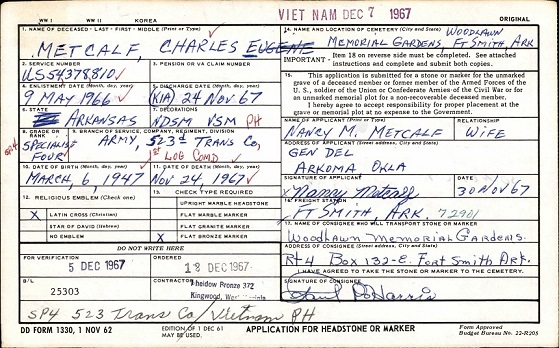 VIET NAM DEC 7 1967
WW I WW II KOREA ORIGINAL
1. NAME OF DECEASED - LAST - FIRST - MIDDLE (Print or Type)
METCALF, CHARLES EUGENE
14. NAME AND LOCATION OF CEMETERY (City and State)
WOODLAWN
MEMORIAL GARDENS, FT SMITH, ARK
IMPORTANT - Item 18 on reverse side must be completed. See attached instructions and complete and submit both copies.
2. SERVICE NUMBER
US54378810
3. PENSION OR VA CLAIM NUMBER
4. ENLISTMENT DATE (Month, day, year)
9 MAY 1966
5. DISCHARGE DATE (Month, day, year)
(KIA) 24 NOV 67
15. This application is submitted for a stone or marker for the unmarked grave of a deceased member or former member of the Armed Forces of the U. S., soldier of the Union or Confederate Armies of the Civil War or for an unmarked memorial plot for a non-recoverable deceased member.
I hereby agree to accept responsibility for proper placement at the grave or memorial plot at no expense to the Government.
6. STATE
ARKANSAS
7. DECORATIONS
NDSM VSM PH
8. GRADE OR RANK
SP4
SPECIALIST FOUR
9. BRANCH OF SERVICE, COMPANY, REGIMENT, DIVISION
ARMY, 523d TRANS CO,
1st LOG COMD
NAME OF APPLICANT (Print or Type)
NANCY M. METCALF
RELATIONSHIP
WIFE
ADDRESS OF APPLICANT (Street address, City and State)
GEN DEL
ARKOMA OKLA
10. DATE OF BIRTH (Month, day, year)
MARCH, 6, 1947
11. DATE OF DEATH (Month, day, year)
NOV 24, 1967
SIGNATURE OF APPLICANT
x Nancy Metcalf
DATE
30 NOV 67
12. RELIGIOUS EMBLEM (Check one)
X LATIN CROSS (Christian)
STAR OF DAVID (Hebrew)
NO EMBLEM
13. CHECK TYPE REQUIRED
UPRIGHT MARBLE HEADSTONE
FLAT MARBLE MARKER
FLAT GRANITE MARKER
X FLAT BRONZE MARKER
16. FREIGHT STATION
FT SMITH, ARK. 72901
17. NAME OF CONSIGNEE WHO WILL TRANSPORT STONE OR MARKER
Woodlawn Memorial Gardens.
ADDRESS OF CONSIGNEE (Street address, City and State)
Rt 4 Box 132-E. Fort Smith Ark.
I HAVE AGREED TO TAKE THE STONE OR MARKER TO THE CEMETERY.
SIGNATURE OF CONSIGNEE
DO NOT WRITE HERE
FOR VERIFICATION
5 DEC 1967
ORDERED
12 DEC 1967
B/L
25303
CONTRACTOR
Sheidow Bronze 372
Kingwood, West Virginia
SP4 523 Trans Co/ Vietnam PH
DD FORM 1330, 1 NOV 62
EDITION OF 1 DEC 61 MAY BE USED.
APPLICATION FOR HEADSTONE OR MARKER
Form Approved
Budget Bureau No. 22-R205